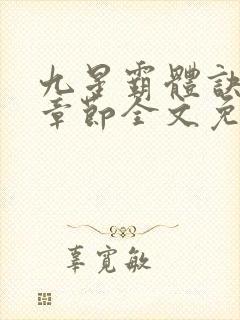 九星霸體訣
章節全文免
辜寬敏